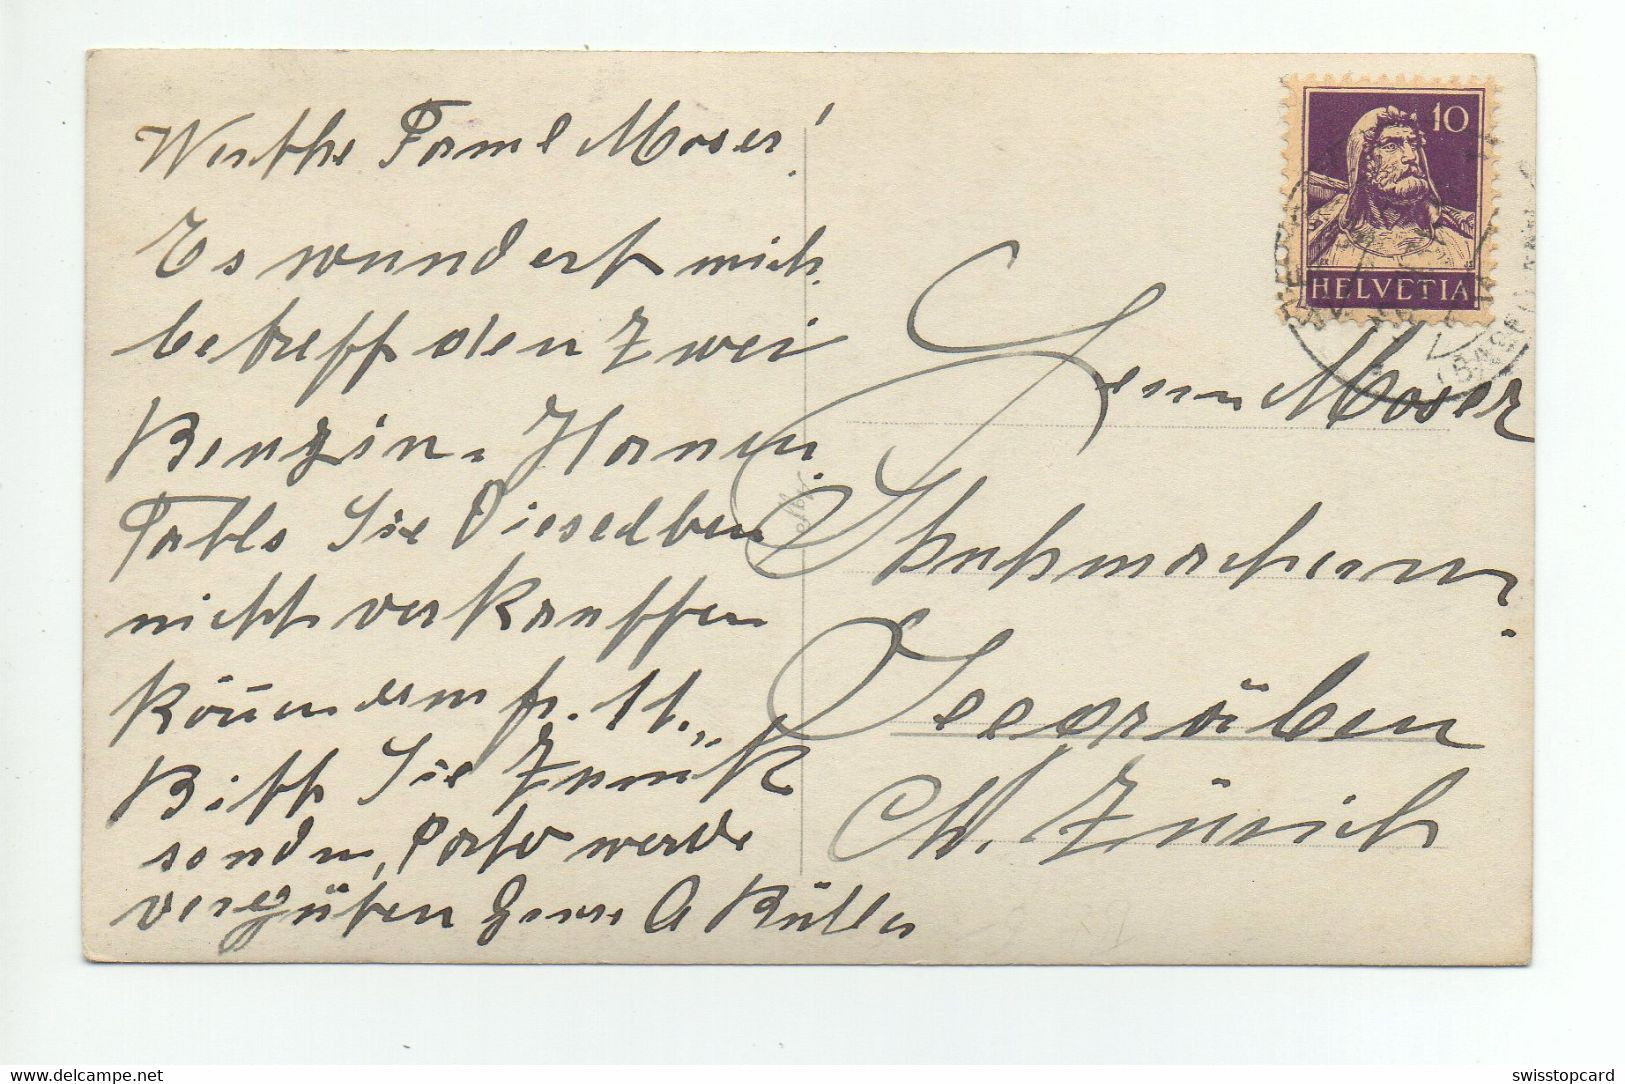 Werthe Faml Moser!
Es wundert mich
betreff den Zwei
Benzin-Hanen.
Falls Sie Dieselben
nicht verkauffen
können um fr. 11.,,
Bitte Sie Zurück
senden, Porto werde
vergüten Gruss A Müller
10
HELVETIA
Herrn Moser
Schuhmacherm.
Seegräben
Ct. Zürich
Agfa
swisstopcard